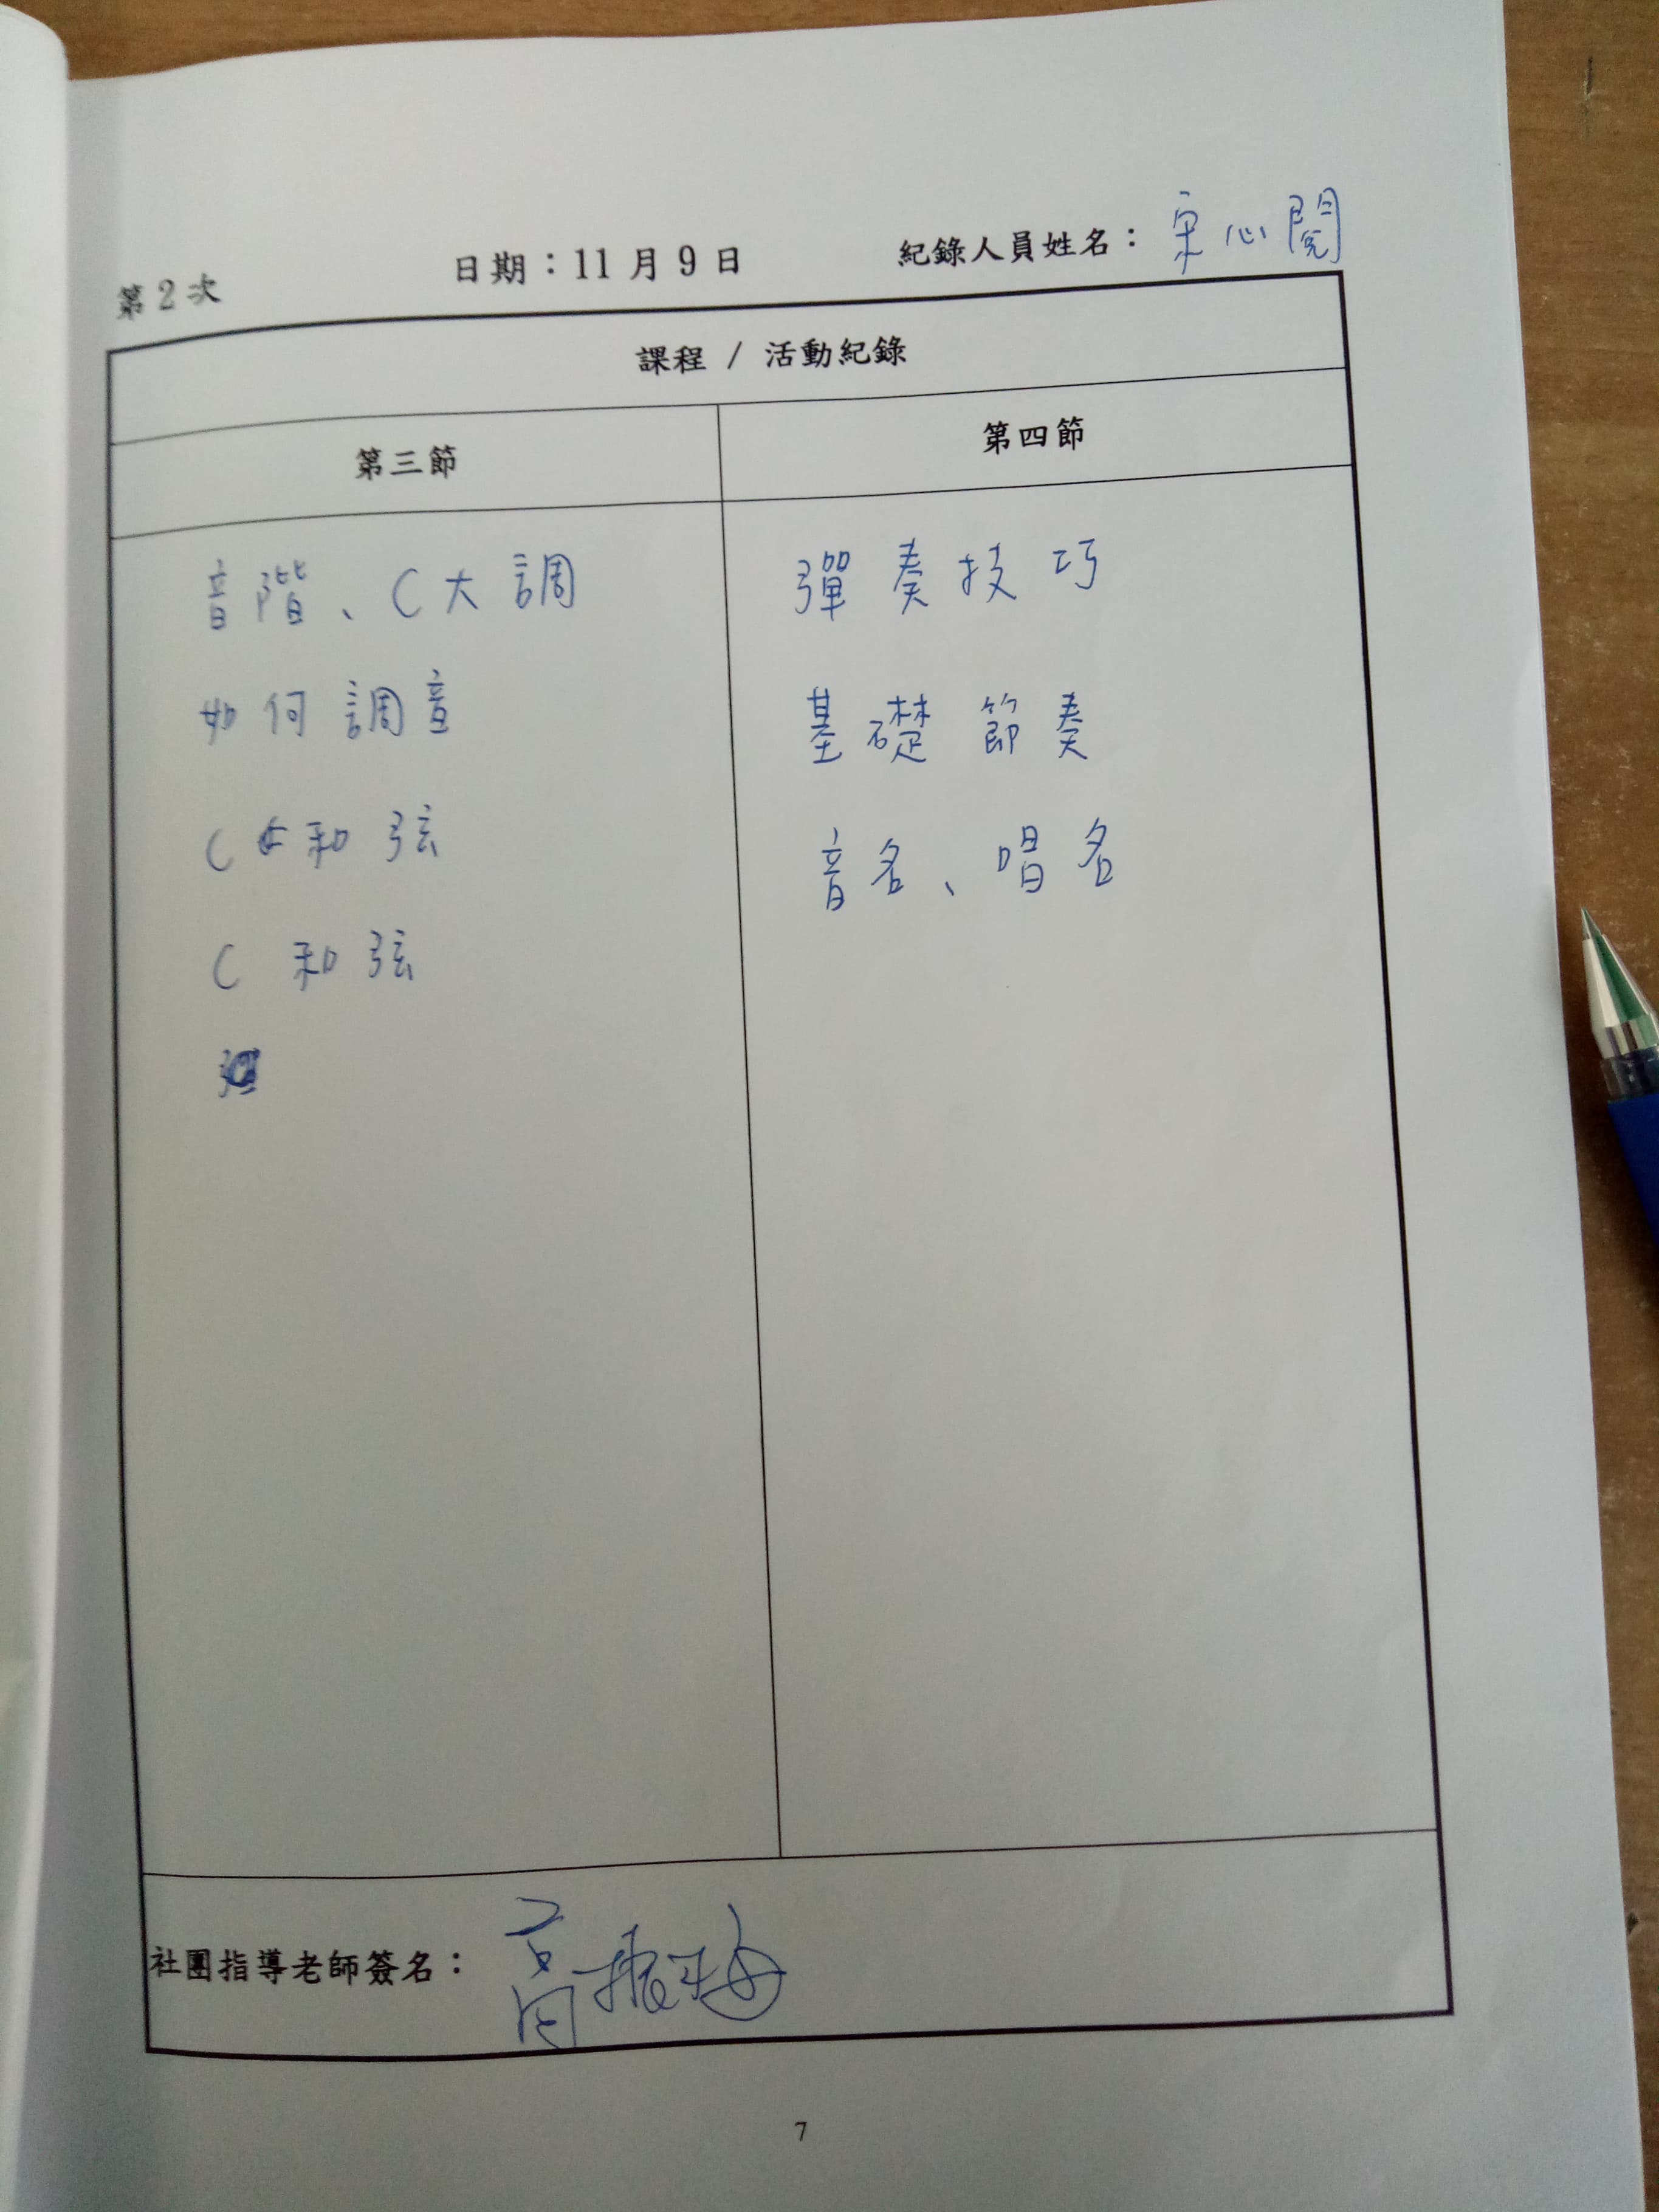 第2次 日期：11月9日 紀錄人員姓名：宋心閱
課程 / 活動紀錄
第三節 第四節
音階、C大調
如何調音
C 和弦
C 和弦
彈奏技巧
基礎節奏
音名、唱名
社團指導老師簽名：高振
7